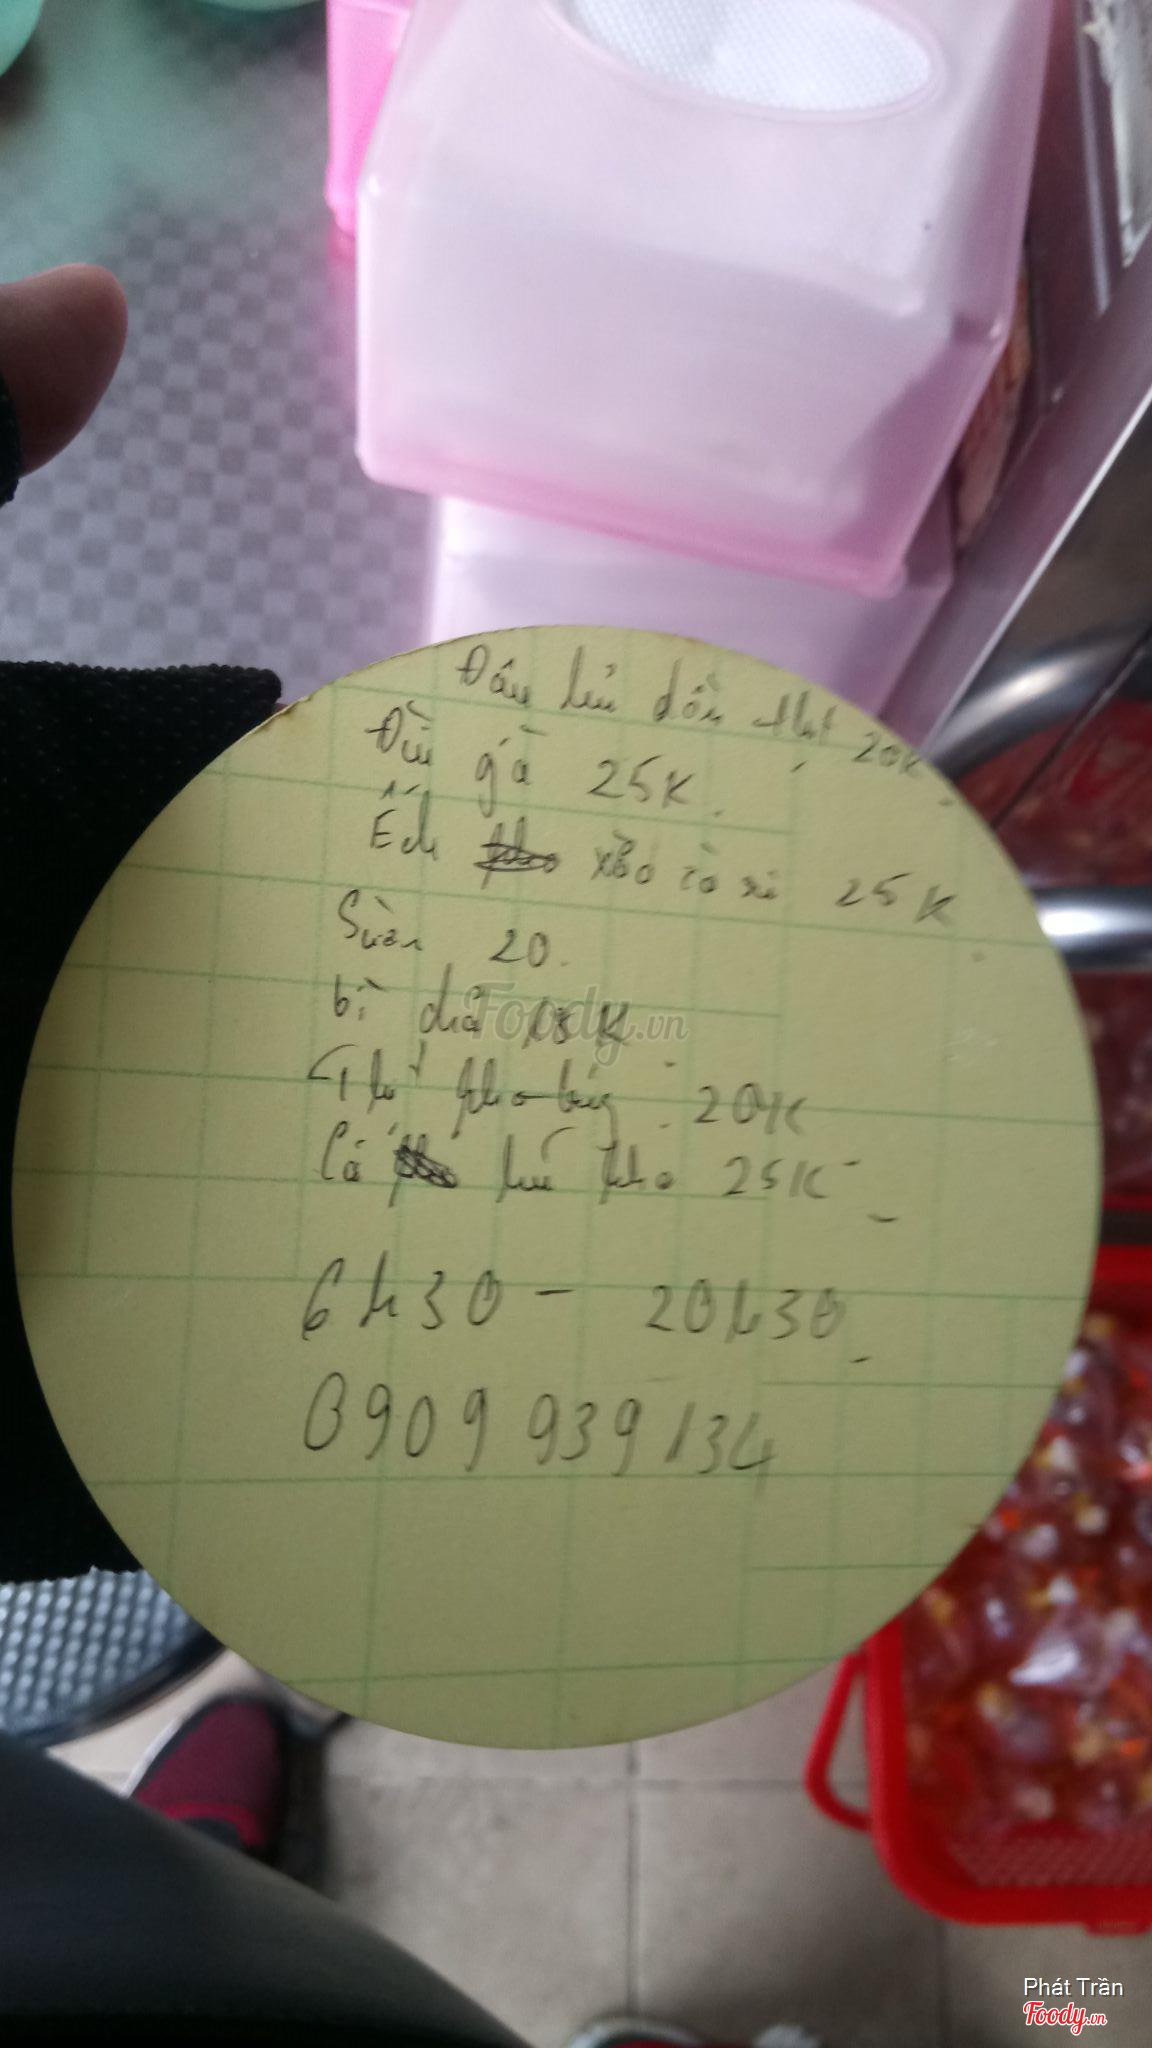 Đậu hủ dồn thịt 20K
Đùi gà 25K
Ếch xào cà ri 25K
Sườn 20
bì chả 18K
Thịt kho trứng 20K
Cá hú kho 25K
6h30 - 20h30
0909 939 134
Foody.vn
Phát Trần
Foody.vn